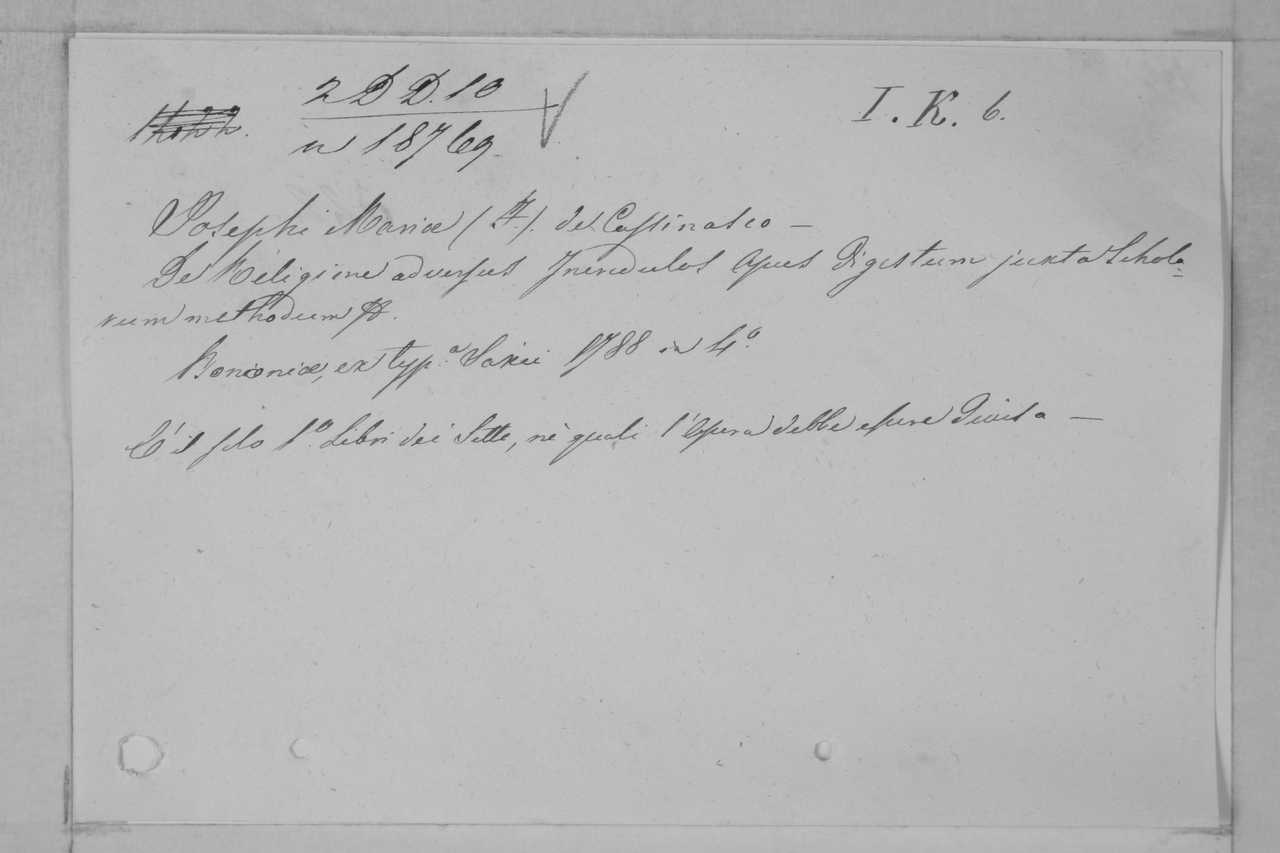 2 D D. 10
I. K. 6.
n 18769.
Josephi Mariæ (F.). de Cassinasco —
De Religione adversus Incredulos Opus Digestum juxta Schola-
rum methodum &.
Bononiæ, ex typ.ª Saxii 1788 in 4.º
C'è il solo 1.º Libri dei Sette, nè quali l'Opera debbe essere Divisa —